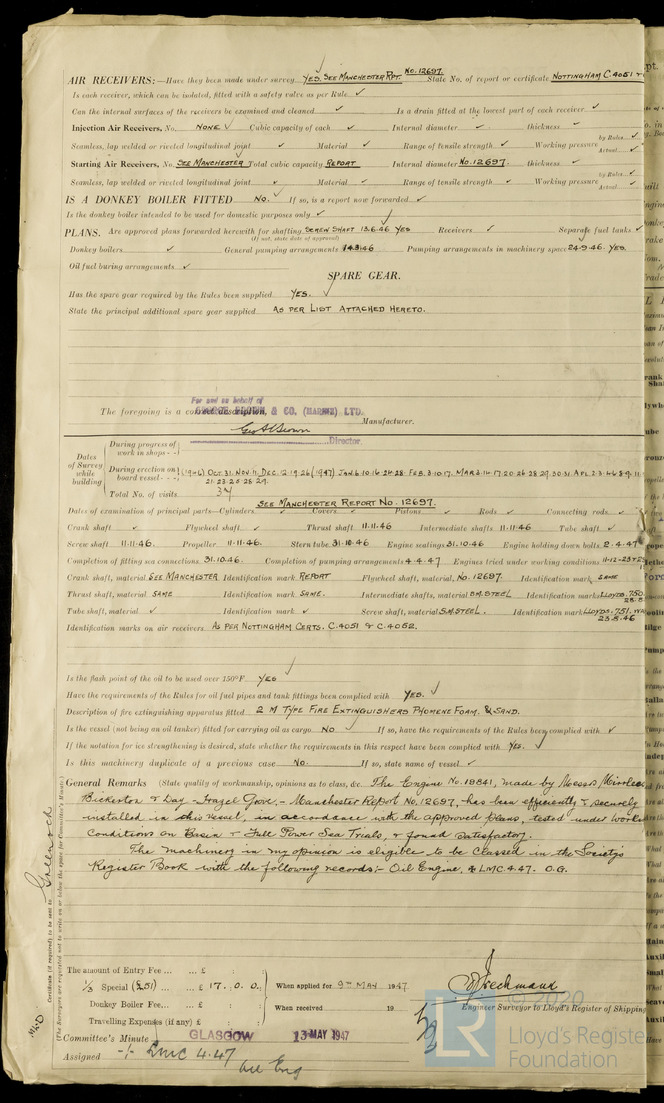 AIR RECEIVERS:—Have they been made under survey YES. SEE MANCHESTER RPT. NO. 12697. State No. of report or certificate NOTTINGHAM C.4051 &
Is each receiver, which can be isolated, fitted with a safety valve as per Rule ✓
Can the internal surfaces of the receivers be examined and cleaned ✓ Is a drain fitted at the lowest part of each receiver ✓
Injection Air Receivers, No. NONE ✓ Cubic capacity of each ✓ Internal diameter ✓ thickness ✓
Seamless, lap welded or riveted longitudinal joint ✓ Material ✓ Range of tensile strength ✓ Working pressure by Rules ✓ Actual ✓
Starting Air Receivers, No. SEE MANCHESTER Total cubic capacity REPORT Internal diameter NO. 12697. thickness ✓
Seamless, lap welded or riveted longitudinal joint ✓ Material ✓ Range of tensile strength ✓ Working pressure by Rules ✓ Actual ✓
IS A DONKEY BOILER FITTED NO. ✓ If so, is a report now forwarded ✓
Is the donkey boiler intended to be used for domestic purposes only ✓
PLANS. Are approved plans forwarded herewith for shafting SCREW SHAFT 13.6.46 YES Receivers ✓ Separate fuel tanks ✓
(If not, state date of approval)
Donkey boilers ✓ General pumping arrangements 14.3.46 Pumping arrangements in machinery space 24.9.46. YES.
Oil fuel buring arrangements ✓
SPARE GEAR.
Has the spare gear required by the Rules been supplied YES. ✓
State the principal additional spare gear supplied AS PER LIST ATTACHED HERETO.
For and on behalf of
GEORGE BROWN & CO. (MARINE) LTD.
The foregoing is a correct description,
Manufacturer.
Geo A Brown
Director.
Dates of Survey while building
During progress of work in shops - -
During erection on board vessel - - - (1946) OCT. 31. NOV. 11. DEC. 12.19.26 (1947) JAN. 6.10.16.24.28. FEB. 3.10.17. MAR. 3.14.17.20.26.28.29.30.31. APL. 2.3.4.6.8.9.11.
21.23.25.28.29.
Total No. of visits 34
SEE MANCHESTER REPORT NO. 12697.
Dates of examination of principal parts—Cylinders ✓ Covers ✓ Pistons ✓ Rods ✓ Connecting rods ✓
Crank shaft ✓ Flywheel shaft ✓ Thrust shaft 11.11.46 Intermediate shafts 11.11.46 Tube shaft ✓
Screw shaft 11.11.46. Propeller 11.11.46. Stern tube 31.10.46 Engine seatings 31.10.46 Engine holding down bolts 2.4.47
Completion of fitting sea connections 31.10.46. Completion of pumping arrangements 4.4.47 Engines tried under working conditions 11-12-23+25
Crank shaft, material SEE MANCHESTER Identification mark REPORT Flywheel shaft, material NO. 12697. Identification mark SAME
Thrust shaft, material SAME Identification mark SAME. Intermediate shafts, material S.M. STEEL Identification marks LLOYDS. 750. 23.8.
Tube shaft, material ✓ Identification mark ✓ Screw shaft, material S.M. STEEL. Identification mark LLOYDS. 751. 23.8.46
Identification marks on air receivers AS PER NOTTINGHAM CERTS. C.4051 & C.4052.
Is the flash point of the oil to be used over 150°F YES ✓
Have the requirements of the Rules for oil fuel pipes and tank fittings been complied with YES. ✓
Description of fire extinguishing apparatus fitted 2 M TYPE FIRE EXTINGUISHERS PHOMENE FOAM. & SAND.
Is the vessel (not being an oil tanker) fitted for carrying oil as cargo NO ✓ If so, have the requirements of the Rules been complied with ✓
If the notation for ice strengthening is desired, state whether the requirements in this respect have been complied with YES. ✓
Is this machinery duplicate of a previous case NO. If so, state name of vessel ✓
General Remarks (State quality of workmanship, opinions as to class, &c. The Engine No. 19841, made by Messrs Mirrlees
Bickerton & Day - Hazel Grove, - Manchester Report No. 12697, has been efficiently & securely
installed in this vessel, in accordance with the approved plans, tested under work
conditions on Basin & Full Power Sea Trials, & found satisfactory.
The machinery in my opinion is eligible to be classed in the Society's
Register Book with the following records:- Oil Engine, & LMC. 4.47. O.G.
Certificate (if required) to be sent to Greenock
(The Surveyors are requested not to write on or below the space for Committee's Minute.)
The amount of Entry Fee ... £ : :
1/3 Special (£51) ... £ 17. 0. 0. When applied for 9TH MAY 1947
Donkey Boiler Fee... £ : :
When received 19
Travelling Expenses (if any) £ : :
Engineer Surveyor to Lloyd's Register of Shipping
Committee's Minute GLASGOW 13 MAY 1947
Assigned + LMC 4.47
Oil Eng
© 2020
LR
Lloyd's Register
Foundation